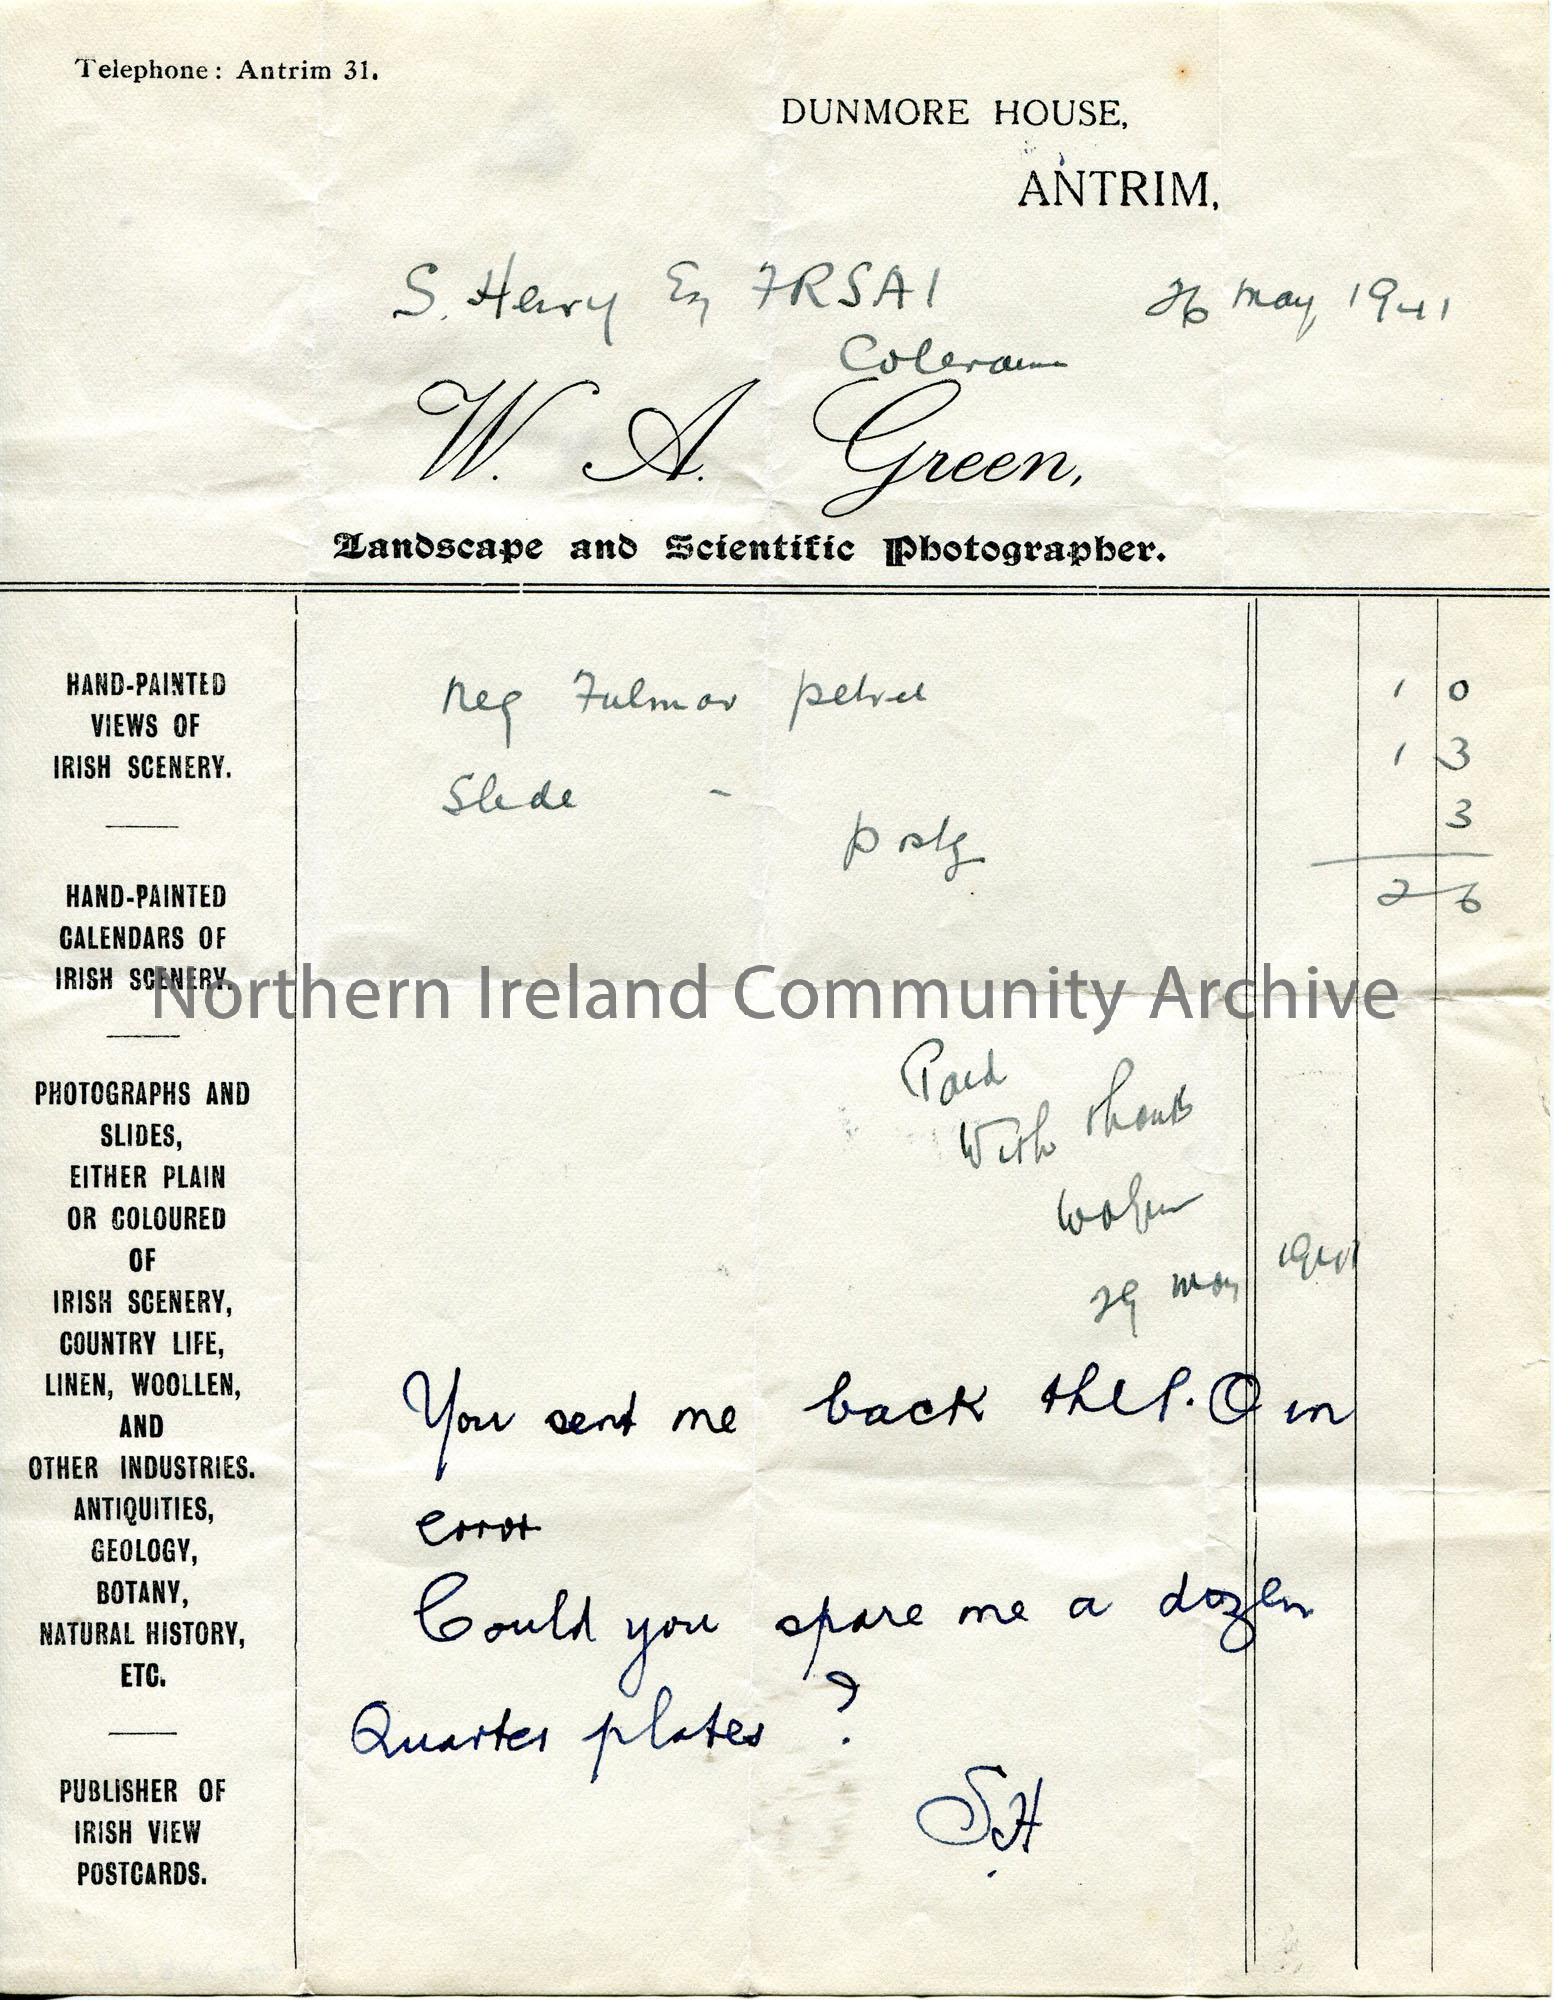 Telephone: Antrim 31.
DUNMORE HOUSE,
ANTRIM,
S. Henry Esq FRSAI
26 May 1941
Coleraine
W. A. Green,
Landscape and Scientific Photographer.
HAND-PAINTED
VIEWS OF
IRISH SCENERY.
HAND-PAINTED
CALENDARS OF
IRISH SCENERY.
PHOTOGRAPHS AND
SLIDES,
EITHER PLAIN
OR COLOURED
OF
IRISH SCENERY,
COUNTRY LIFE,
LINEN, WOOLLEN,
AND
OTHER INDUSTRIES.
ANTIQUITIES,
GEOLOGY,
BOTANY,
NATURAL HISTORY,
ETC.
PUBLISHER OF
IRISH VIEW
POSTCARDS.
Neg Fulmar petrel 1 0
Slide - 1 3
postg 3
2 6
Northern Ireland Community Archive
Paid
With thanks
WAGreen
29 May 1941
You sent me back the P.O in
error
Could you spare me a dozen
Quarter plates ?
S.H